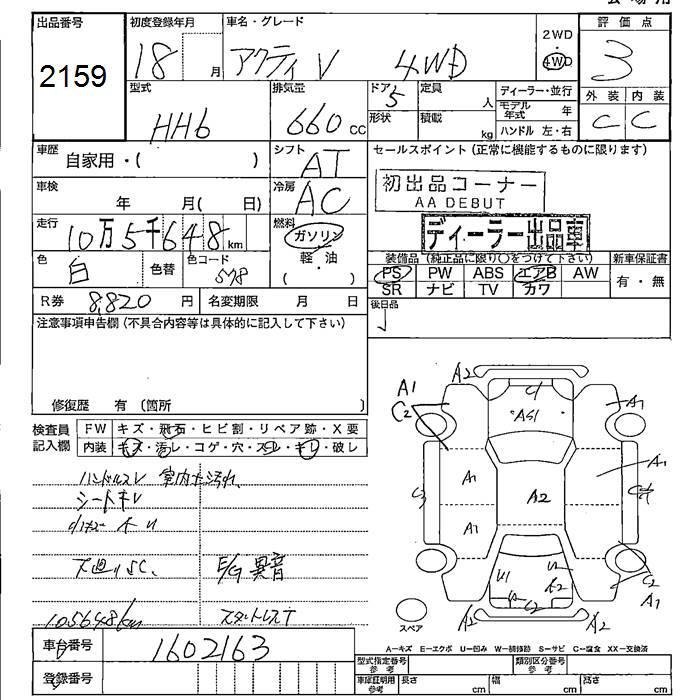 出品番号 2159
初度登録年月 18 月
車名・グレード アクティ V 4WD
2WD
4WD
評価点 3
外装 内装
C C
型式 HH6
排気量 660 cc
ドア 5
形状
定員 人
積載 kg
ディーラー・並行
モデル年式 年
ハンドル 左・右
車歴 自家用・( )
シフト AT
セールスポイント (正常に機能するものに限ります)
初出品コーナー
AA DEBUT
ディーラー出品車
車検 年 月( 日)
冷房 AC
走行 10万5千648 km
燃料 ガソリン
軽・油
( )
色 白 色替
色コード 578
装備品 (純正品に限り○をつけて下さい)
新車保証書
PS PW ABS エアB AW
SR ナビ TV カワ
有・無
R券 8,820 円
名変期限 月 日
後日品
注意事項申告欄 (不具合内容等は具体的に記入して下さい)
修復歴 有 〔箇所 〕
検査員記入欄
FW キズ・飛石・ヒビ割・リペア跡・X要
内装 キズ・汚レ・コゲ・穴・スレ・キレ・破レ
ハンドルスレ 室内キズ汚れ
シートキレ
下廻りSC、 E/G異音
105648km スタットレスT
車台番号 1602163
登録番号
A2
A1
C2
C1
AS1
A1
A1
A1
A2
A1
C2
A1
U1
A2
W
C2
A2
A2
スペア
A−キズ E−エクボ U−凹み W−補修跡 S−サビ C−腐食 XX−交換済
型式指定番号 参考
類別区分番号 参考
車庫証明用 参考 長さ cm 幅 cm 高さ cm